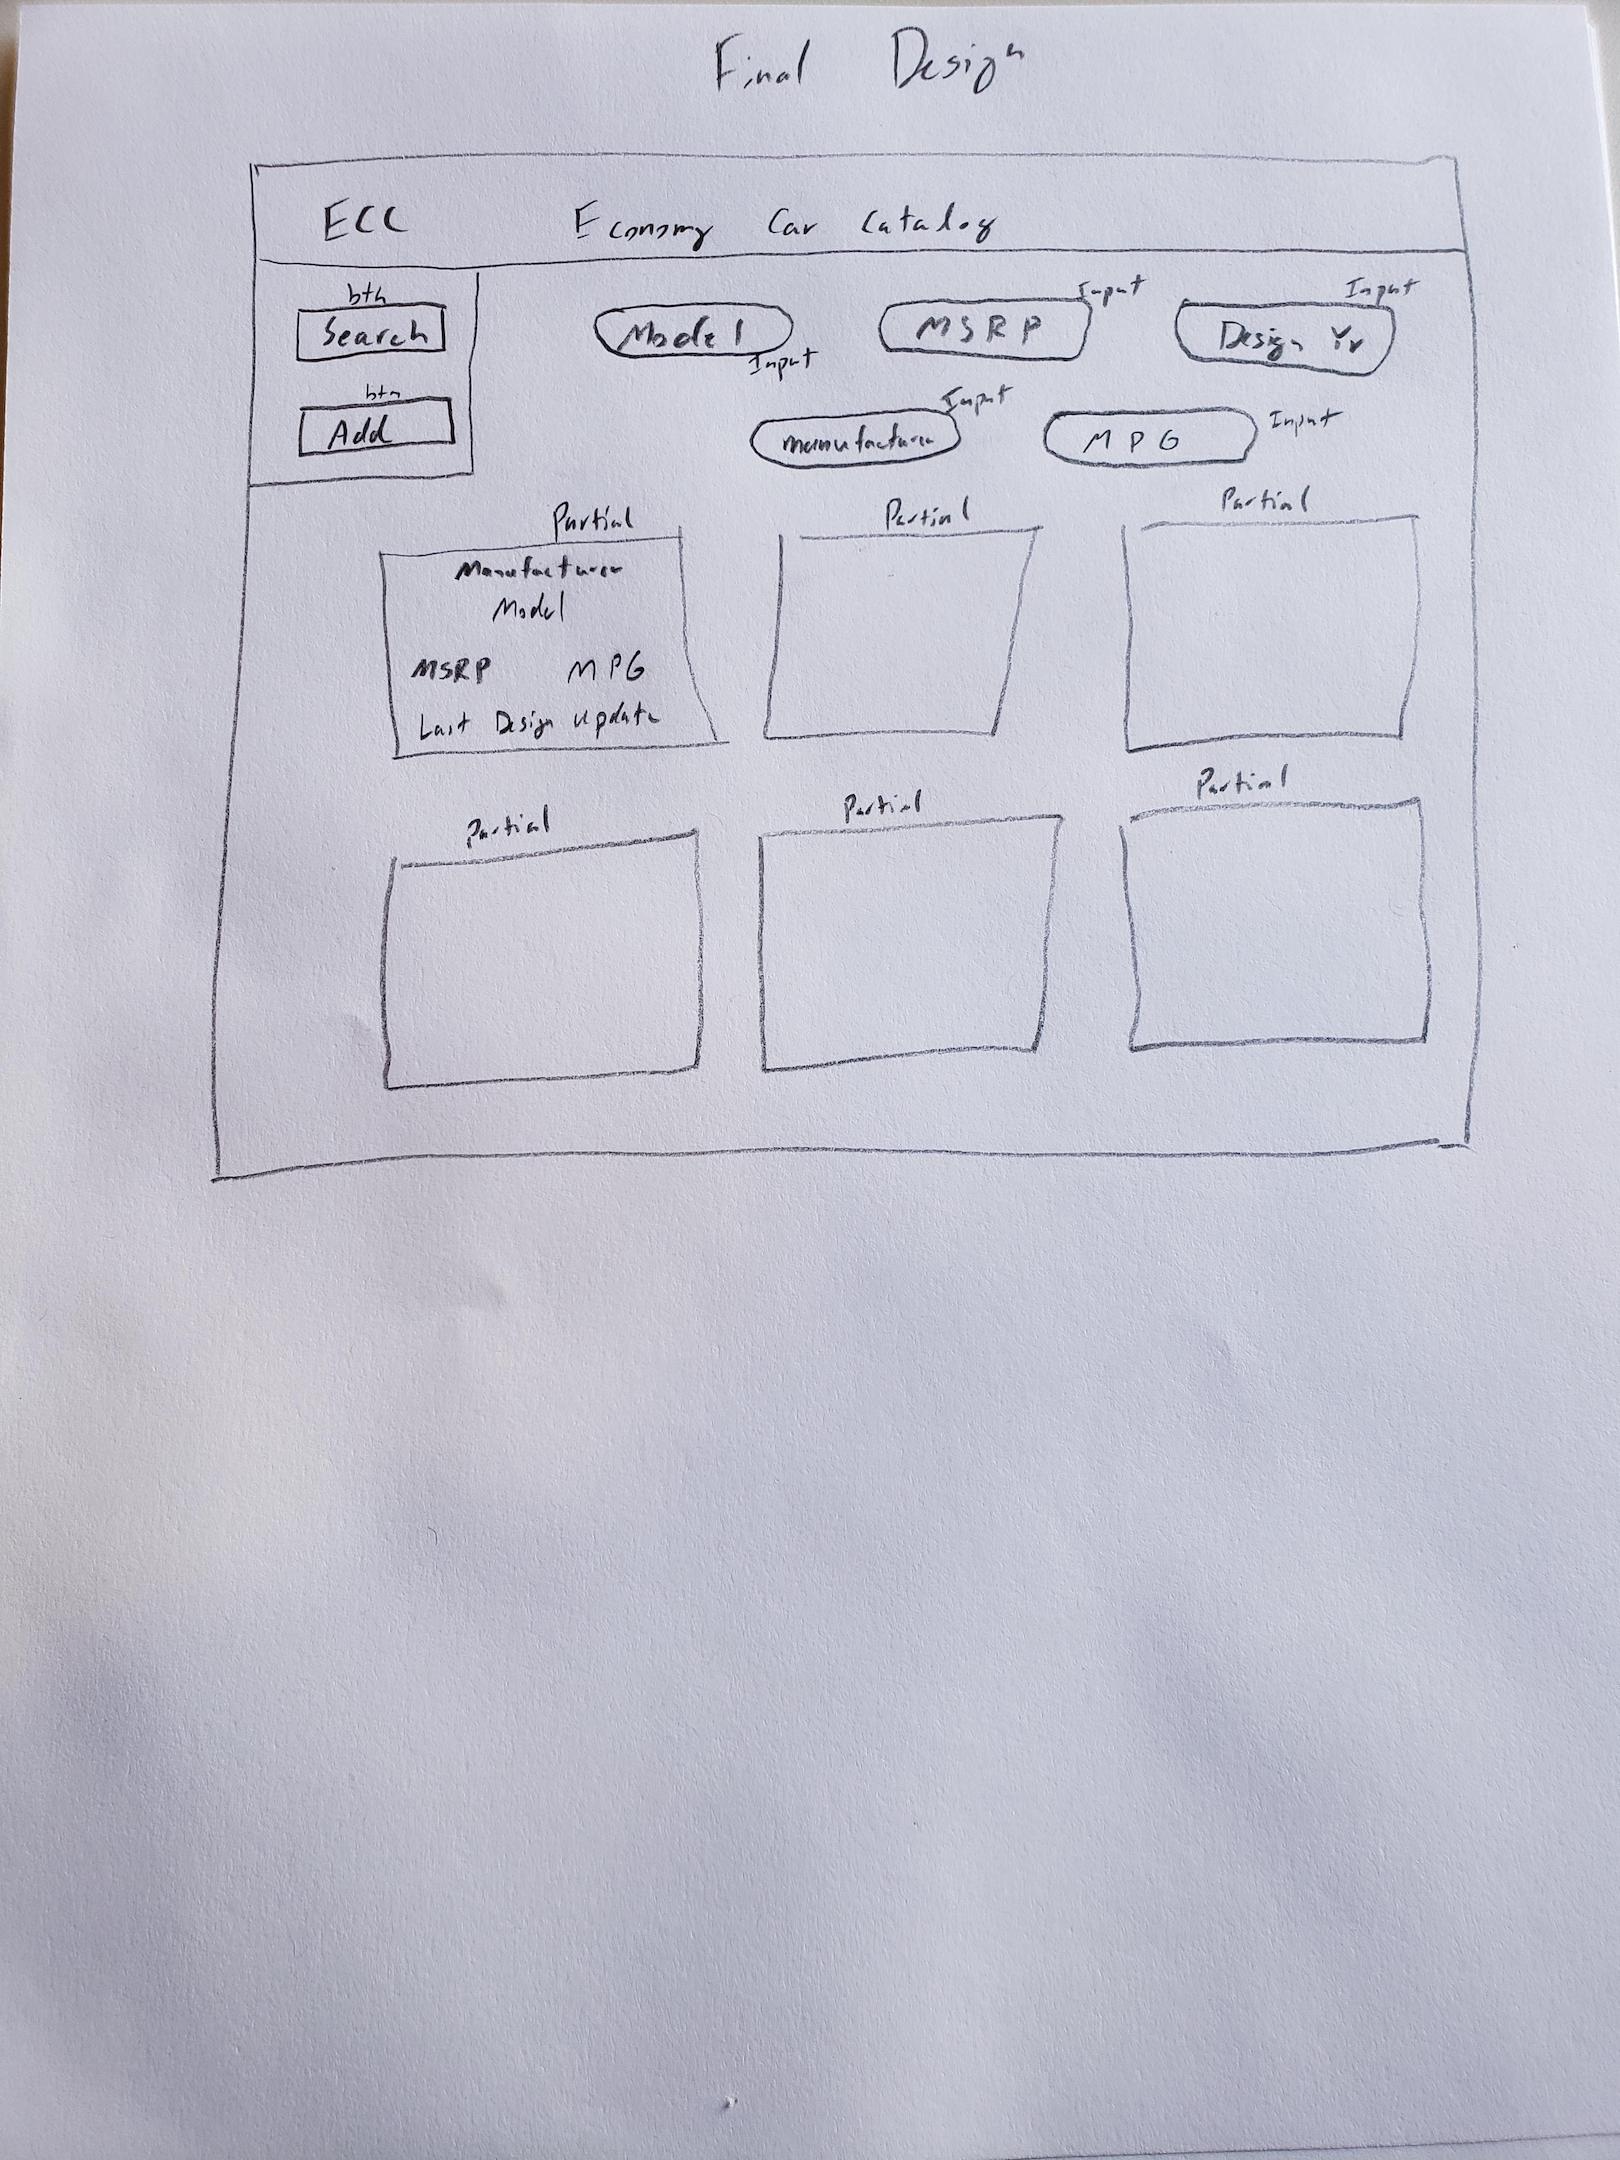 Final Design
ECC Economy Car Catalog
btn
Search
btn
Add
Model
Input
MSRP
Input
Design Yr
Input
Manufacturer
Input
MPG
Input
Partial
Manufacturer
Model
MSRP MPG
Last Design Update
Partial
Partial
Partial
Partial
Partial